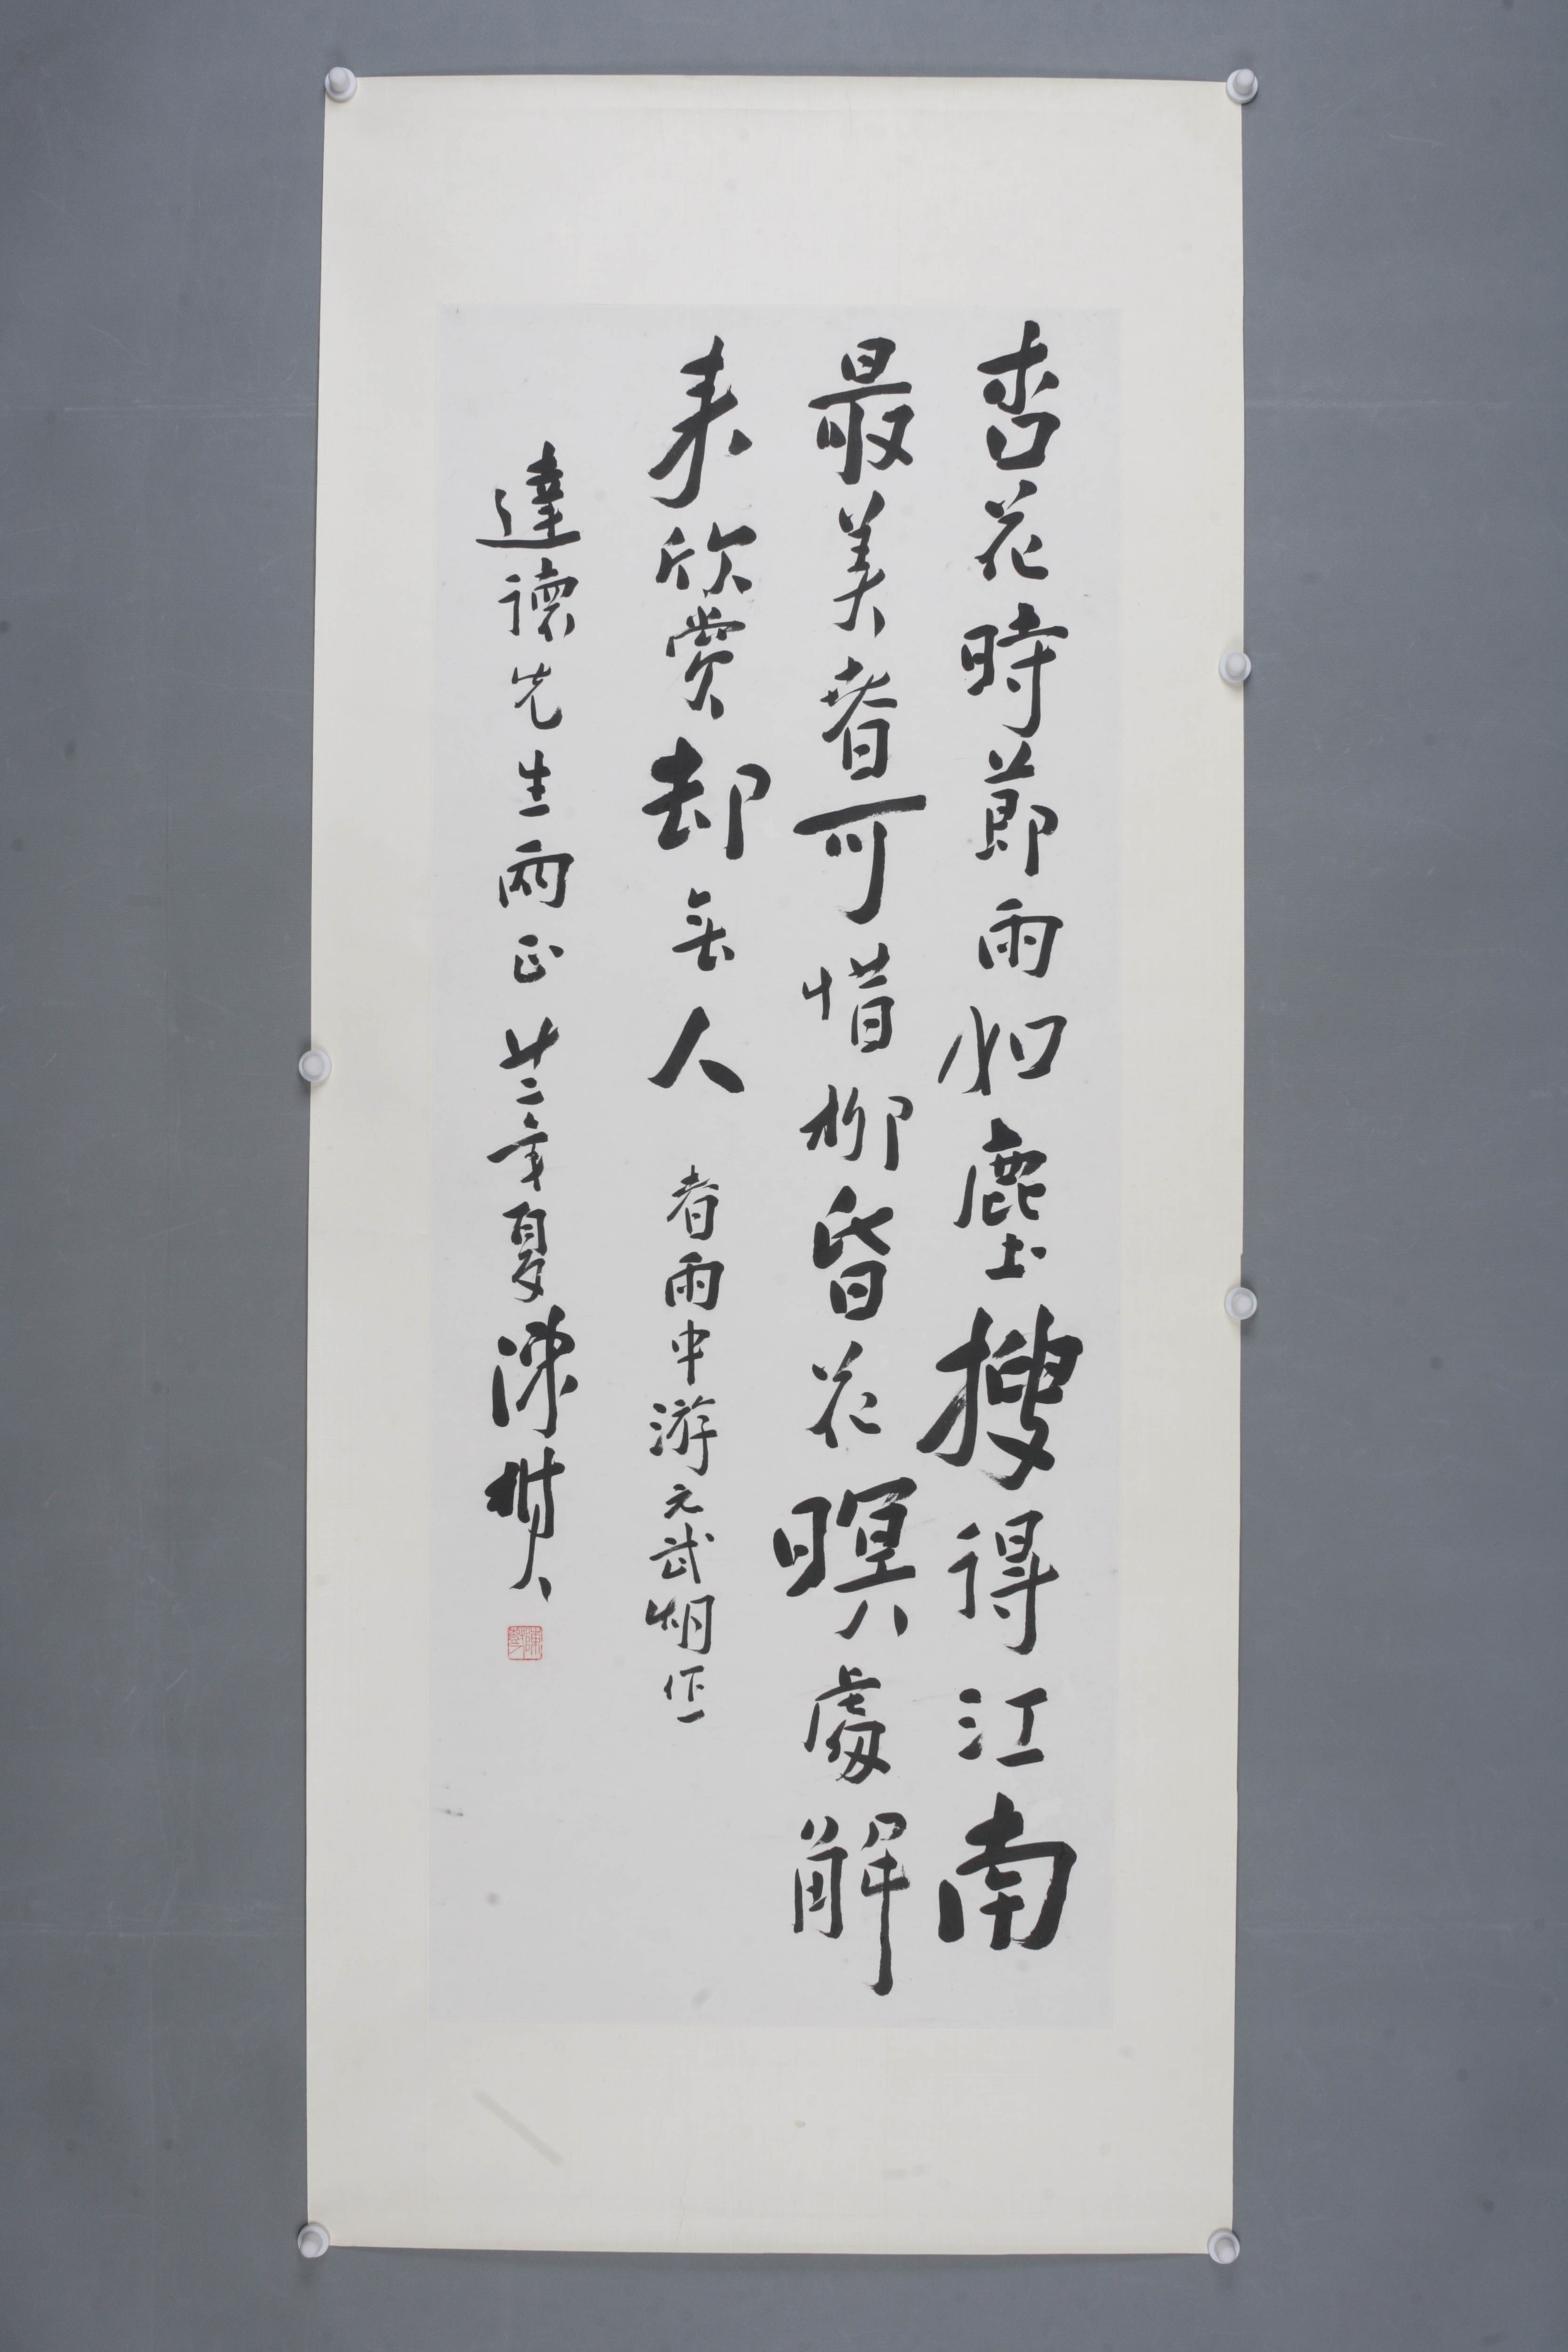 杏花時節雨如塵搜得江南
最美者可惜柳昏花暝處解
来欣賞却無人　春雨中游元武湖作
達懷先生兩正　廿二年夏陳樹人